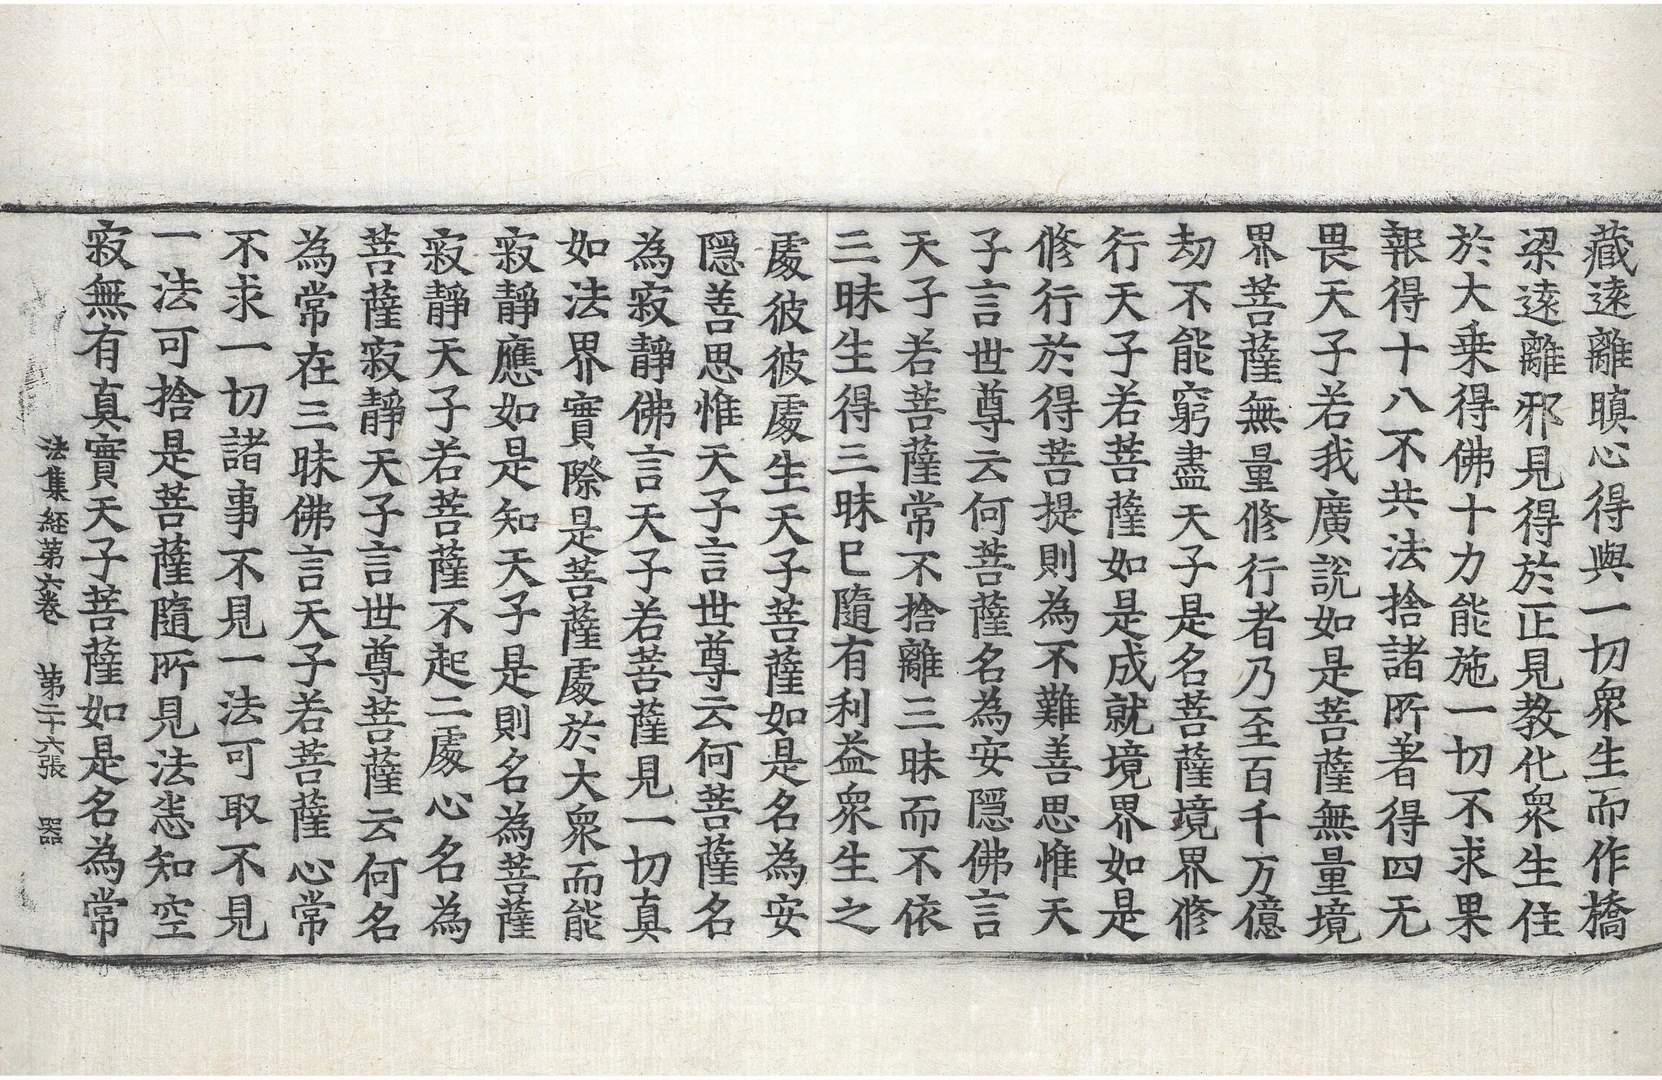 藏遠離瞋心得與一切衆生而作橋
梁遠離邪見得於正見教化衆生住
於大乗得佛十力能施一切不求果
報得十八不共法捨諸所著得四无
畏天子若我廣説如是菩薩無量境
界菩薩無量修行者乃至百千万億
劫不能窮盡天子是名菩薩境界修
行天子若菩薩如是成就境界如是
修行於得菩提則為不難善思惟天
子言世尊云何菩薩名為安隱佛言
天子若菩薩常不捨離三昧而不依
三昧生得三昧已隨有利益衆生之
處彼彼處生天子菩薩如是名為安
隱善思惟天子言世尊云何菩薩名
為寂靜佛言天子若菩薩見一切真
如法界實際是菩薩處於大衆而能
寂靜應如是知天子是則名為菩薩
寂靜天子若菩薩不起二處心名為
菩薩寂靜天子言世尊菩薩云何名
為常在三昧佛言天子若菩薩心常
不求一切諸事不見一法可取不見
一法可捨是菩薩隨所見法悉知空
寂無有真實天子菩薩如是名為常
法集経第六卷 第二十六張 器